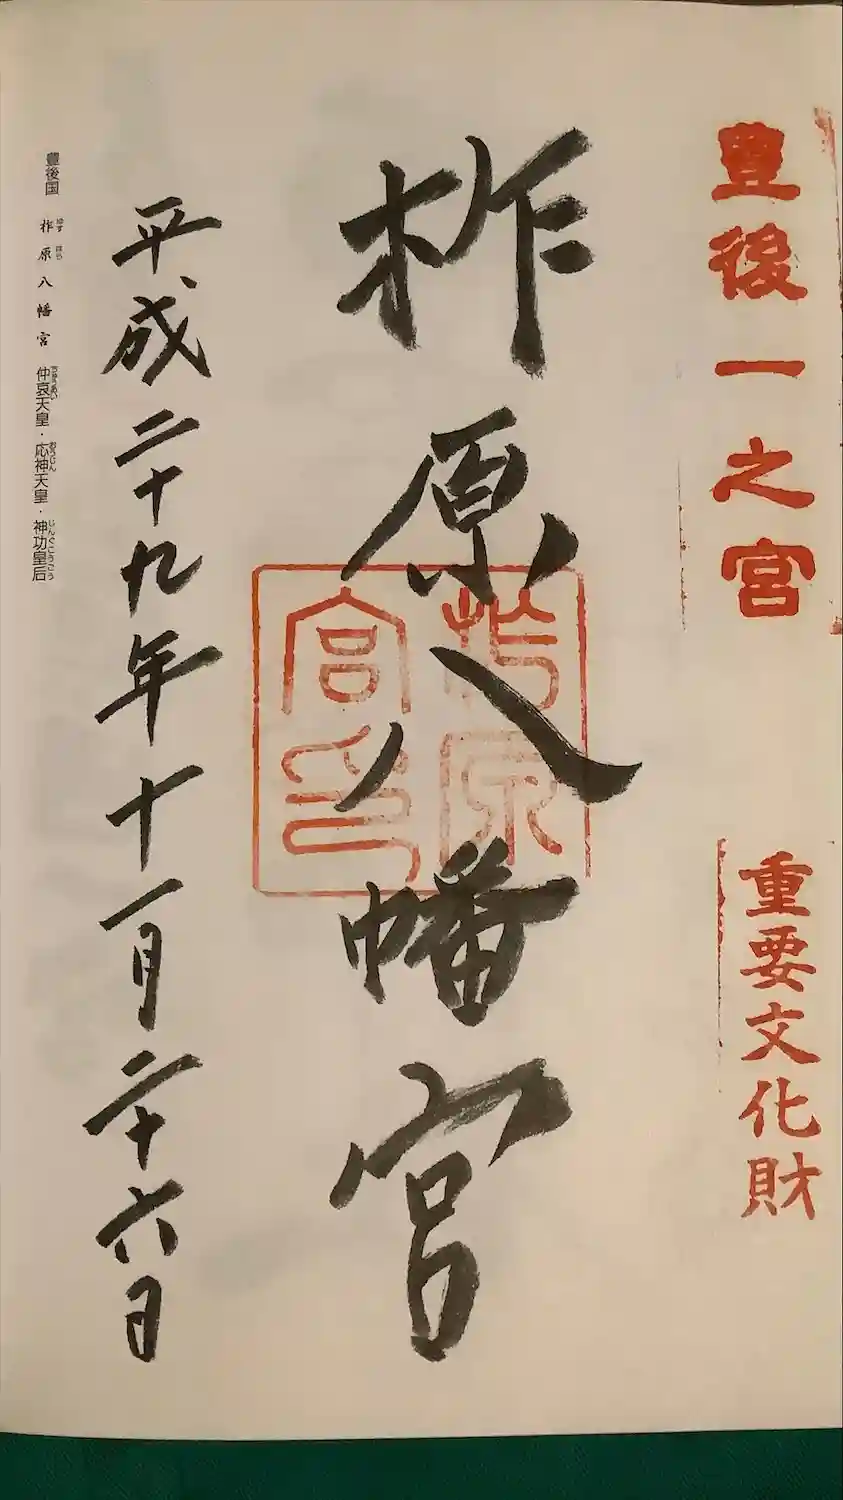 豊後一之宮
重要文化財
柞原八幡宮
柞原
宮印
平成二十九年十一月二十六日
豊後国 柞原八幡宮 仲哀天皇・応神天皇・神功皇后